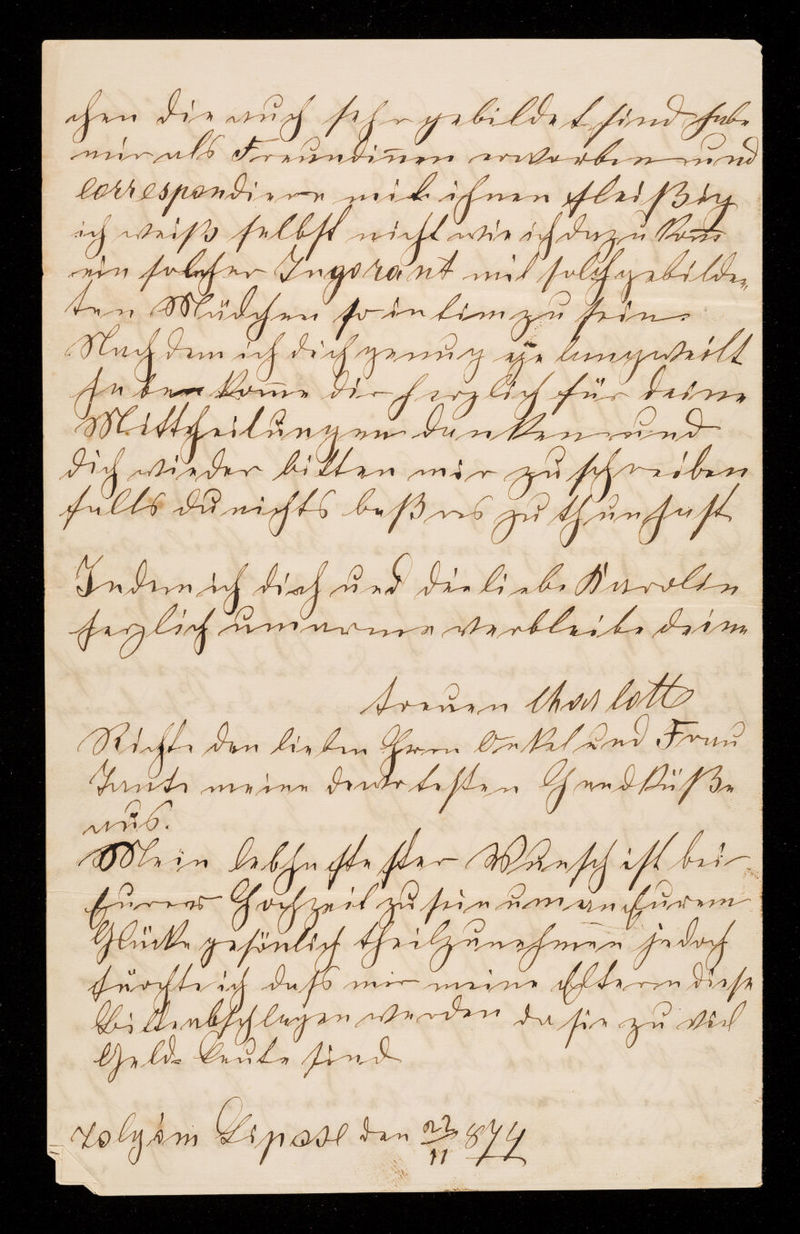 chen die auch sehr gebildet sind habe
mir als Freundinen erworben und
correspondiere mit ihnen fleißig
ich weiß selbst nicht wie ich dazu kom̅
ein solcher Ingorant mit solch gebilde=
ten Mädchen so intim zu sein.
Nachdem ich dich genug gelangweilt
habe kom̅e dir herzlich für deine
Mittheilungen danken und
dich wieder bitten mir zu schreiben
falls du nichts beßres zu thun hast
Indem ich dich und die liebe Karolin
herzlich umarme verbleibe deine
treuen Charlott
Richte den lieben Herrn Onkel und Frau
Tante meine Handküße
aus.
Mein lebhaftester Wunsch ist bei
Eurer Hochzeit zu sein um an Eurem
Glücke persönlich theilzunehmen jedoch
fürchte ich daß mir meine Eltern diese
Bitte abschlagen werden da sie zu viel
Geld=Leute sind
den 22/11 874